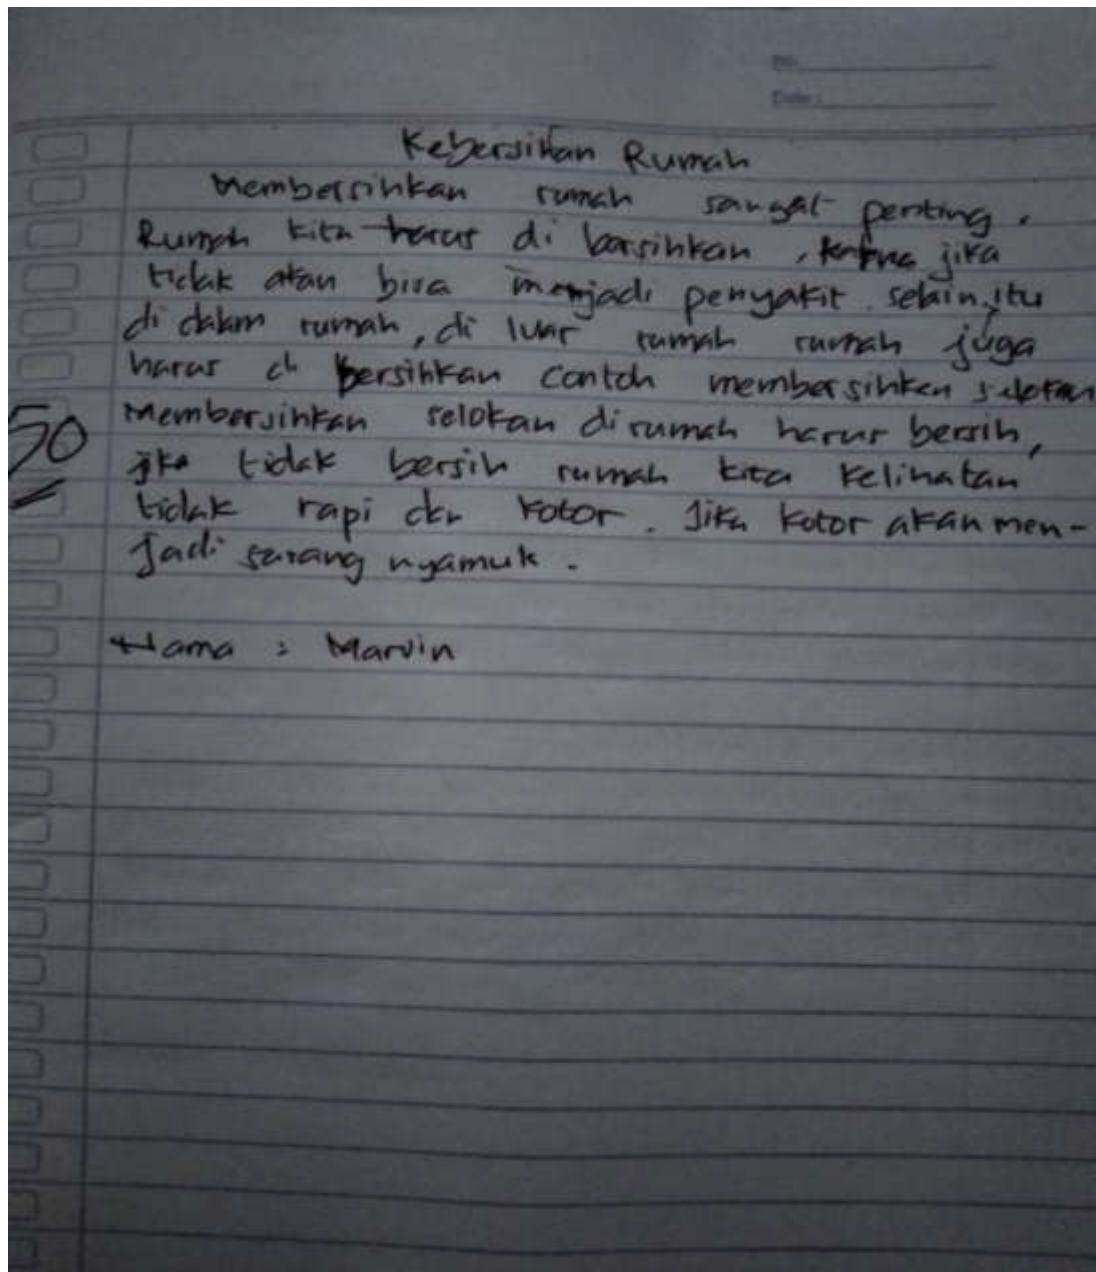 No.
Date :
Kebersihan Rumah
Membersihkan rumah sangat penting.
Rumah kita harus di barsihkan, karena jika
tidak akan bisa menjadi penyakit. selain itu
di dalam rumah, di luar rumah rumah juga
harus di bersihkan contoh membersihken selokan
Membersihkan selokan dirumah harus bersih,
jika tidak bersih rumah kita kelihatan
50
tidak rapi dan kotor. Jika kotor akan men-
jadi sarang nyamuk.
Nama : Marvin